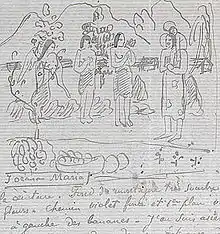 Ia orana Maria
Fond de montagne très sombre
fleurs - chemin violet foncé et 1er plan
à gauche des bananes - J'en suis assez